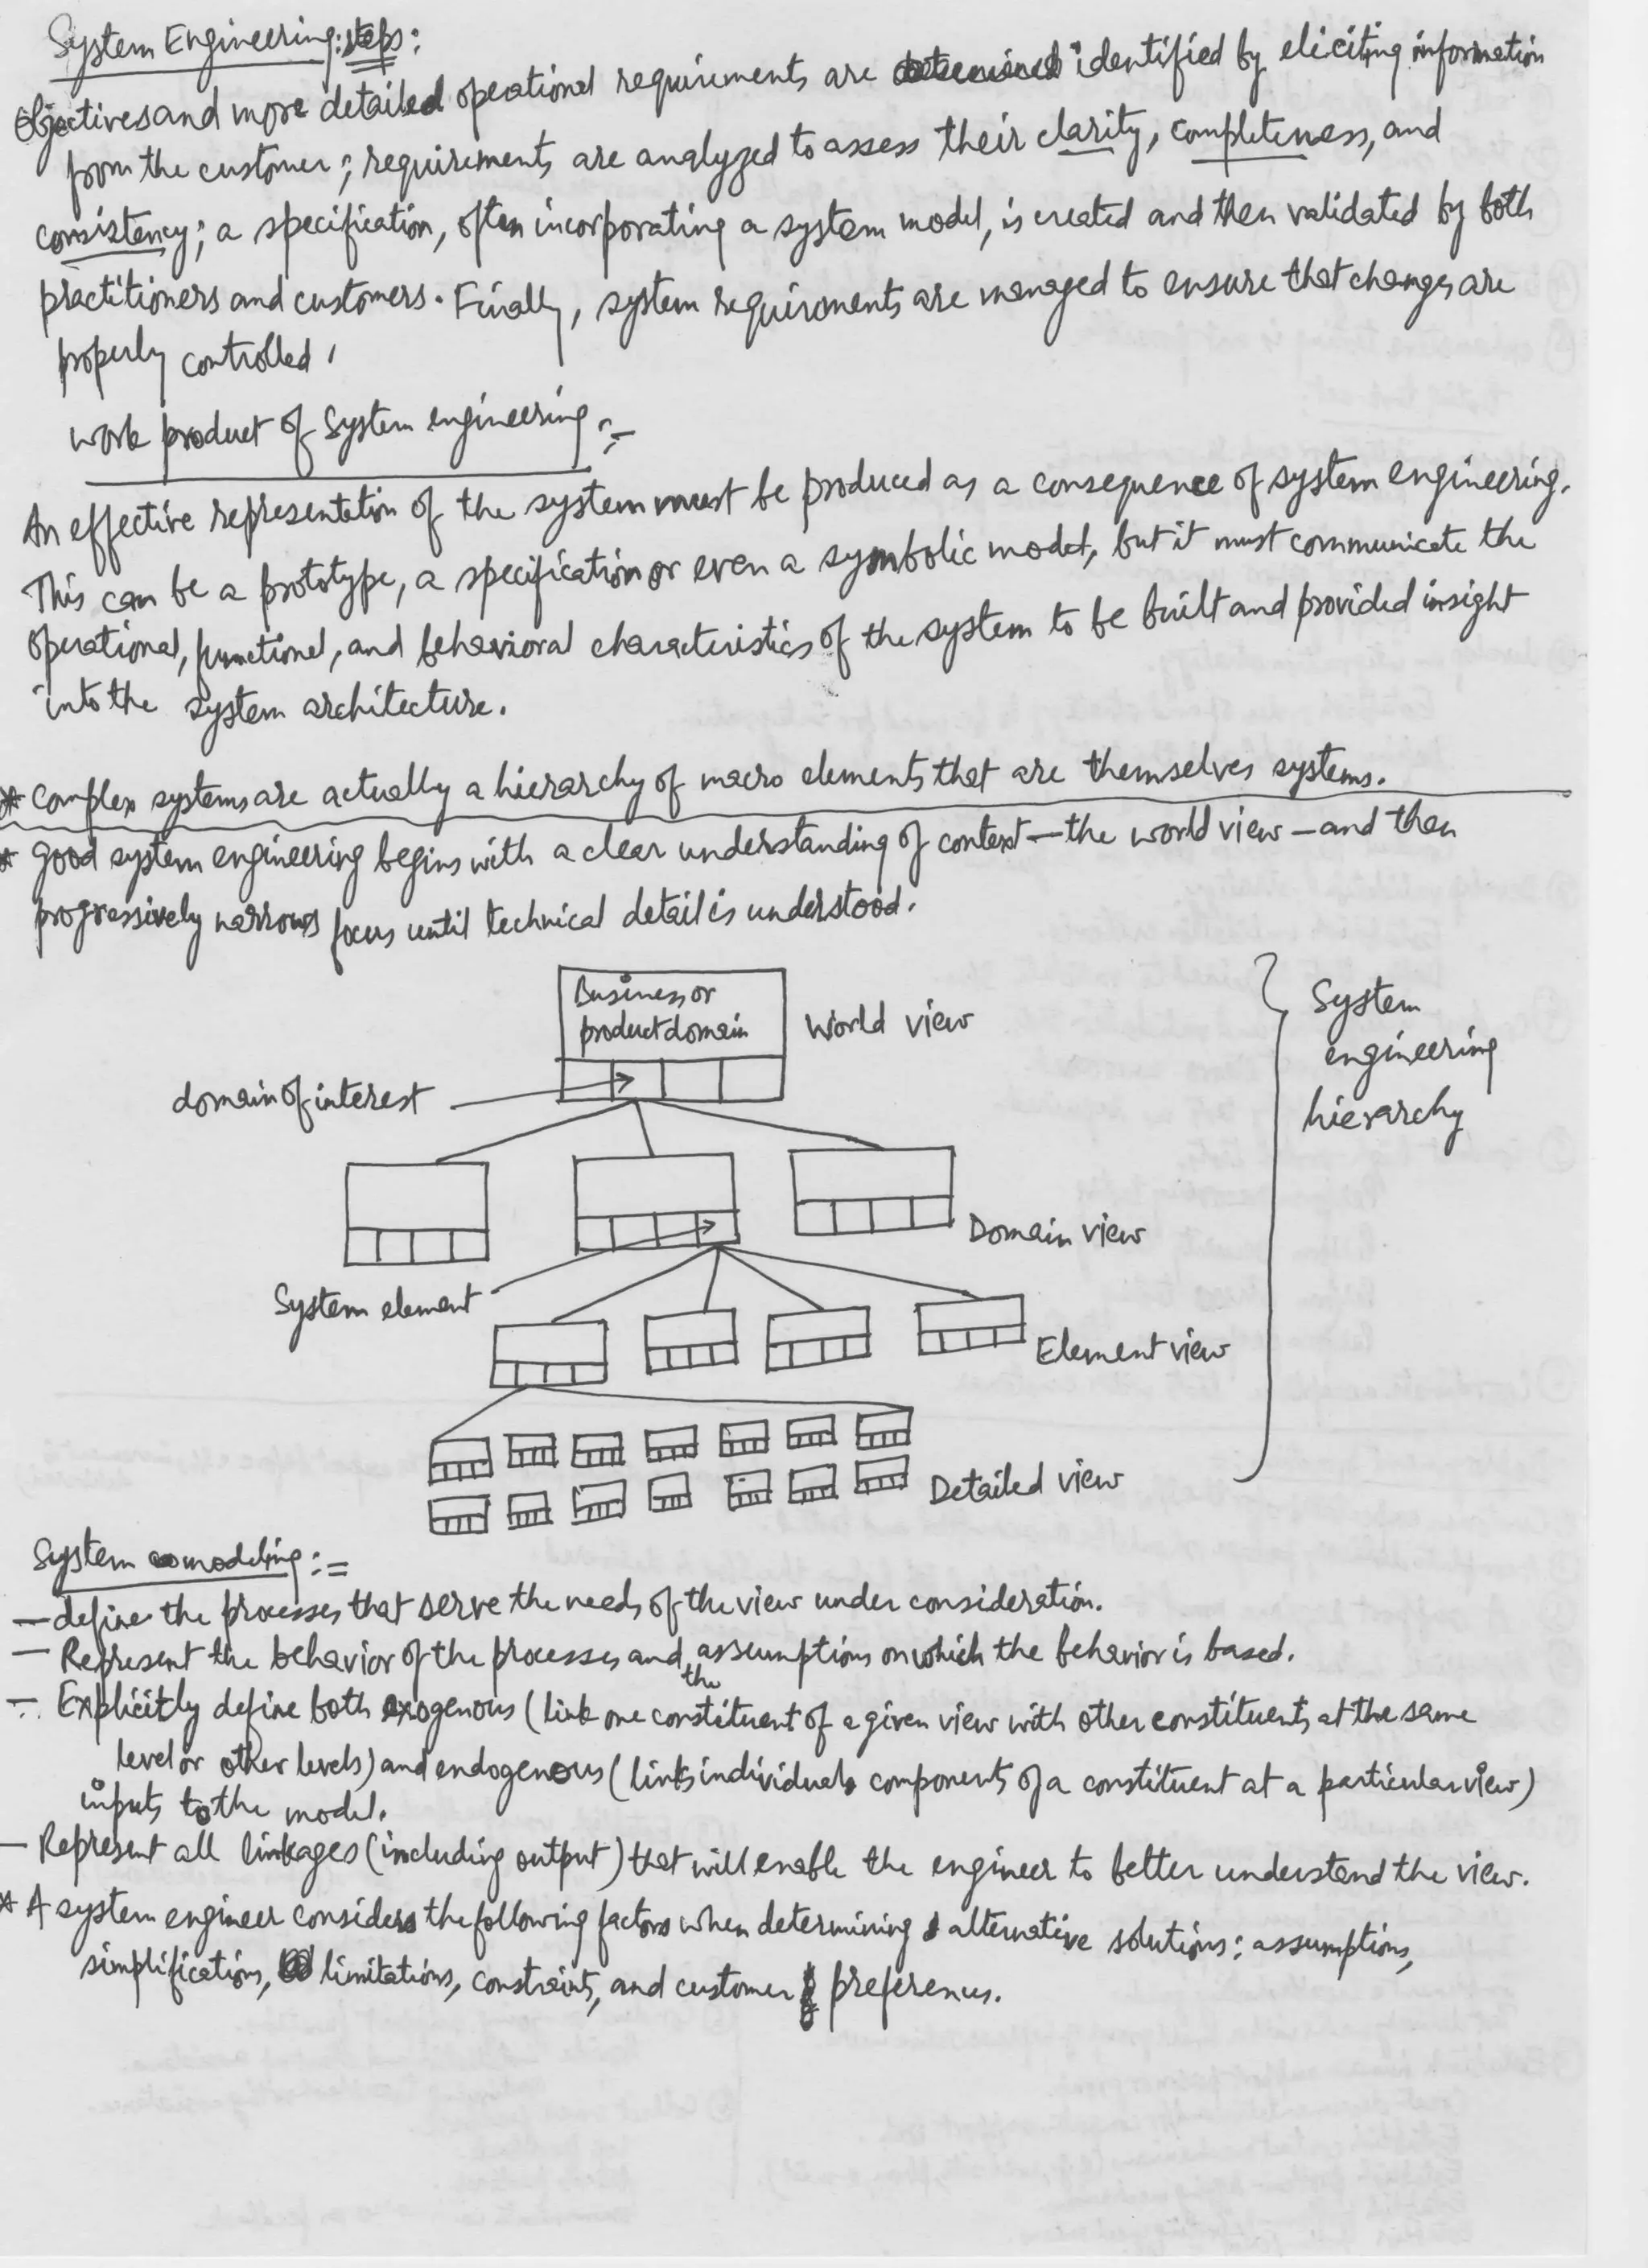 System Engineering: steps:
Objectives and more detailed operational requirements are identified by eliciting information
from the customer; requirements are analyzed to assess their clarity, completeness, and
consistency; a specification, often incorporating a system model, is created and then validated by both
practitioners and customers. Finally, system requirements are managed to ensure that changes are
properly controlled.
Work product of System engineering :-
An effective representation of the system must be produced as a consequence of system engineering.
This can be a prototype, a specification or even a symbolic model, but it must communicate the
operational, functional, and behavioral characteristics of the system to be built and provided insight
into the system architecture.
* Complex systems are actually a hierarchy of macro elements that are themselves systems.
* Good system engineering begins with a clear understanding of context — the world view — and then
progressively narrows focus until technical detail is understood.
Business or
product domain
World view
domain of interest
System
engineering
hierarchy
Domain view
System element
Element view
Detailed view
System modeling :=
— define the processes that serve the needs of the view under consideration.
— Represent the behavior of the processes and the assumptions on which the behavior is based.
— Explicitly define both exogenous (link one constituent of a given view with other constituents at the same
level or other levels) and endogenous (links individual components of a constituent at a particular view)
inputs to the model.
— Represent all linkages (including output) that will enable the engineer to better understand the view.
* A system engineer considers the following factors when determining alternative solutions: assumptions,
simplifications, limitations, constraints, and customer preferences.